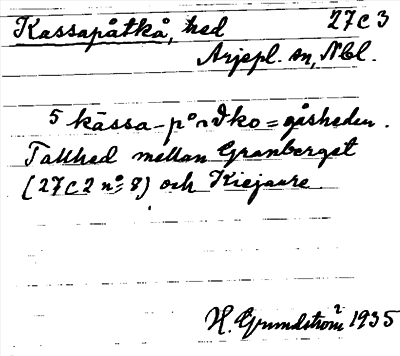 Kassapåtkå, hed 27C3
Arjepl. sn, Nbl.
5 kāssa-på = gåsheden.
Tallhed mellan Granberget
(27C2 nº 8) och Kiejaure.
H. Grundström 1935